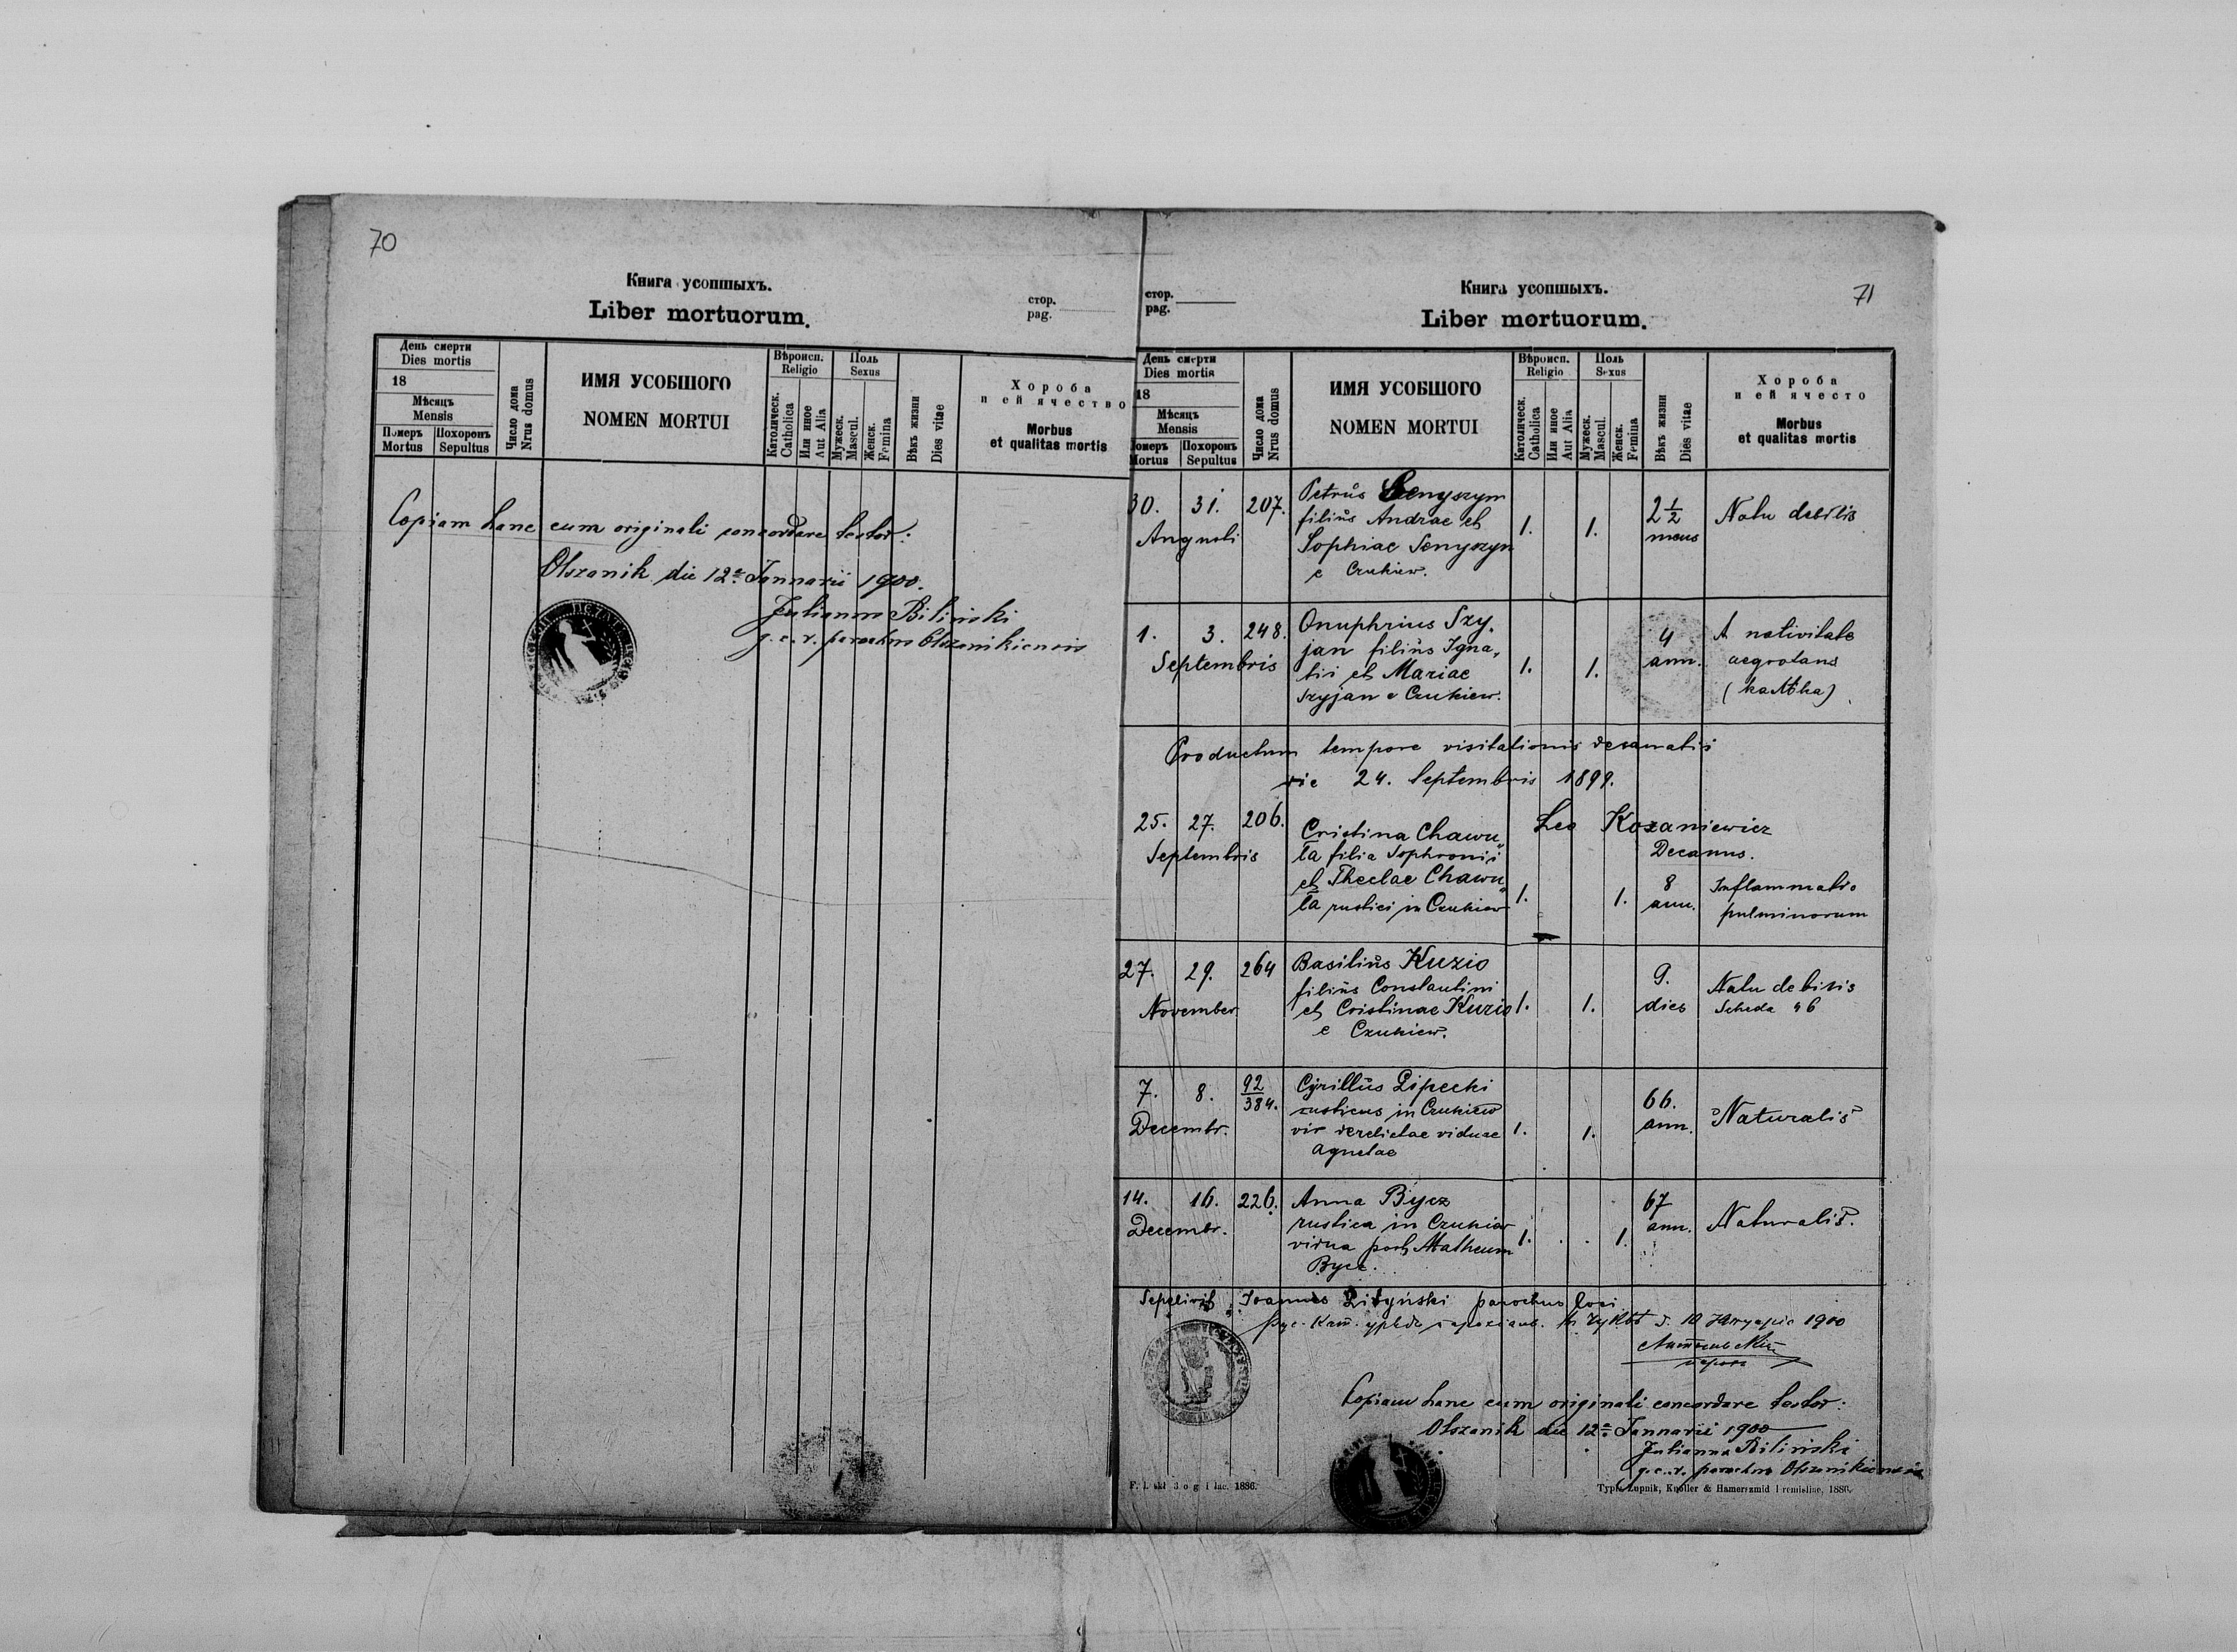 70
Книга усопшыхъ.
Liber mortuorum.
стор.
pag.
День смерти
Dies mortis
18
Мѣсяць
Mensis
Померъ
Mortus
Похоронъ
Sepultus
Число дома
Nrus domus
ИМЯ УСОБШОГО
NOMEN MORTUI
Вѣроисп.
Religio
Католическ.
Catholica
Или иное
Aut Alia
Поль
Sexus
Мужеск.
Mascul.
Женск.
Femina
Вѣкъ жизни
Dies vitae
Хороба
и ей ячество
Morbus
et qualitas mortis
Copiam hanc cum originali concordare testor:
Olszanik die 12a Januarii 1900.
Julianus Biliński
g.c.r. parochus Olszanikiensis
71
стор.
pag.
Книга усопшыхъ.
Liber mortuorum.
День смерти
Dies mortis
18
Мѣсяць
Mensis
Померъ
Mortus
Похоронъ
Sepultus
Число дома
Nrus domus
ИМЯ УСОБШОГО
NOMEN MORTUI
Вѣроисп.
Religio
Католическ.
Catholica
Или иное
Aut Alia
Поль
Sexus
Мужеск.
Mascul.
Женск.
Femina
Вѣкъ жизни
Dies vitae
Хороба
и ей ячесто
Morbus
et qualitas mortis
30. 31. 207. Petrus Senyszyn
filius Andrae et 1. 1. 2 1/2 Natu debilis
Augusti Sophiae Senyszyn mens
e Czukiew.
1. 3. 248. Onuphrius Szy„
jan filius Igna„ 4 A nativitate
Septembris tii et Mariae 1. 1. ann. aegrotans
Szyjan e Czukiew. (калѣка)
Productum tempore visitationis decanalis
die 24. Septembris 1899.
Leo Kozaniewicz
Decanus.
25. 27. 206. Cristina Chawu„
Septembris ła filia Sophronii
et Theclae Chawu„ 8 Inflammatio
ła rustici in Czukiew 1. 1. ann. pulminorum
27. 29. 264 Basilius Kuzio 9.
filius Constantini Natu debilis
November. et Cristinae Kuzio 1. 1. dies Scheda 46
e Czukiew.
7. 8. 92/384. Cyrillus Lipecki 66.
rusticus in Czukiew Naturalis
Decembr. vir derelictae viduae 1. 1. ann.
Agnetae
14. 16. 226. Anna Bycz 67
rustica in Czukiew ann. Naturalis.
Decembr. vidua post Matheum 1. 1.
Bycz.
Sepelivit Joannes parochus loci
1900
Copiam hanc cum originali concordare testor:
Olszanik die 12a Januarii 1900
Julianus Biliński
g.c.r. parochus Olszanikiensis
1886.
Typis Żupnik, Knoller & Hamerszmid Premisliae, 1886.